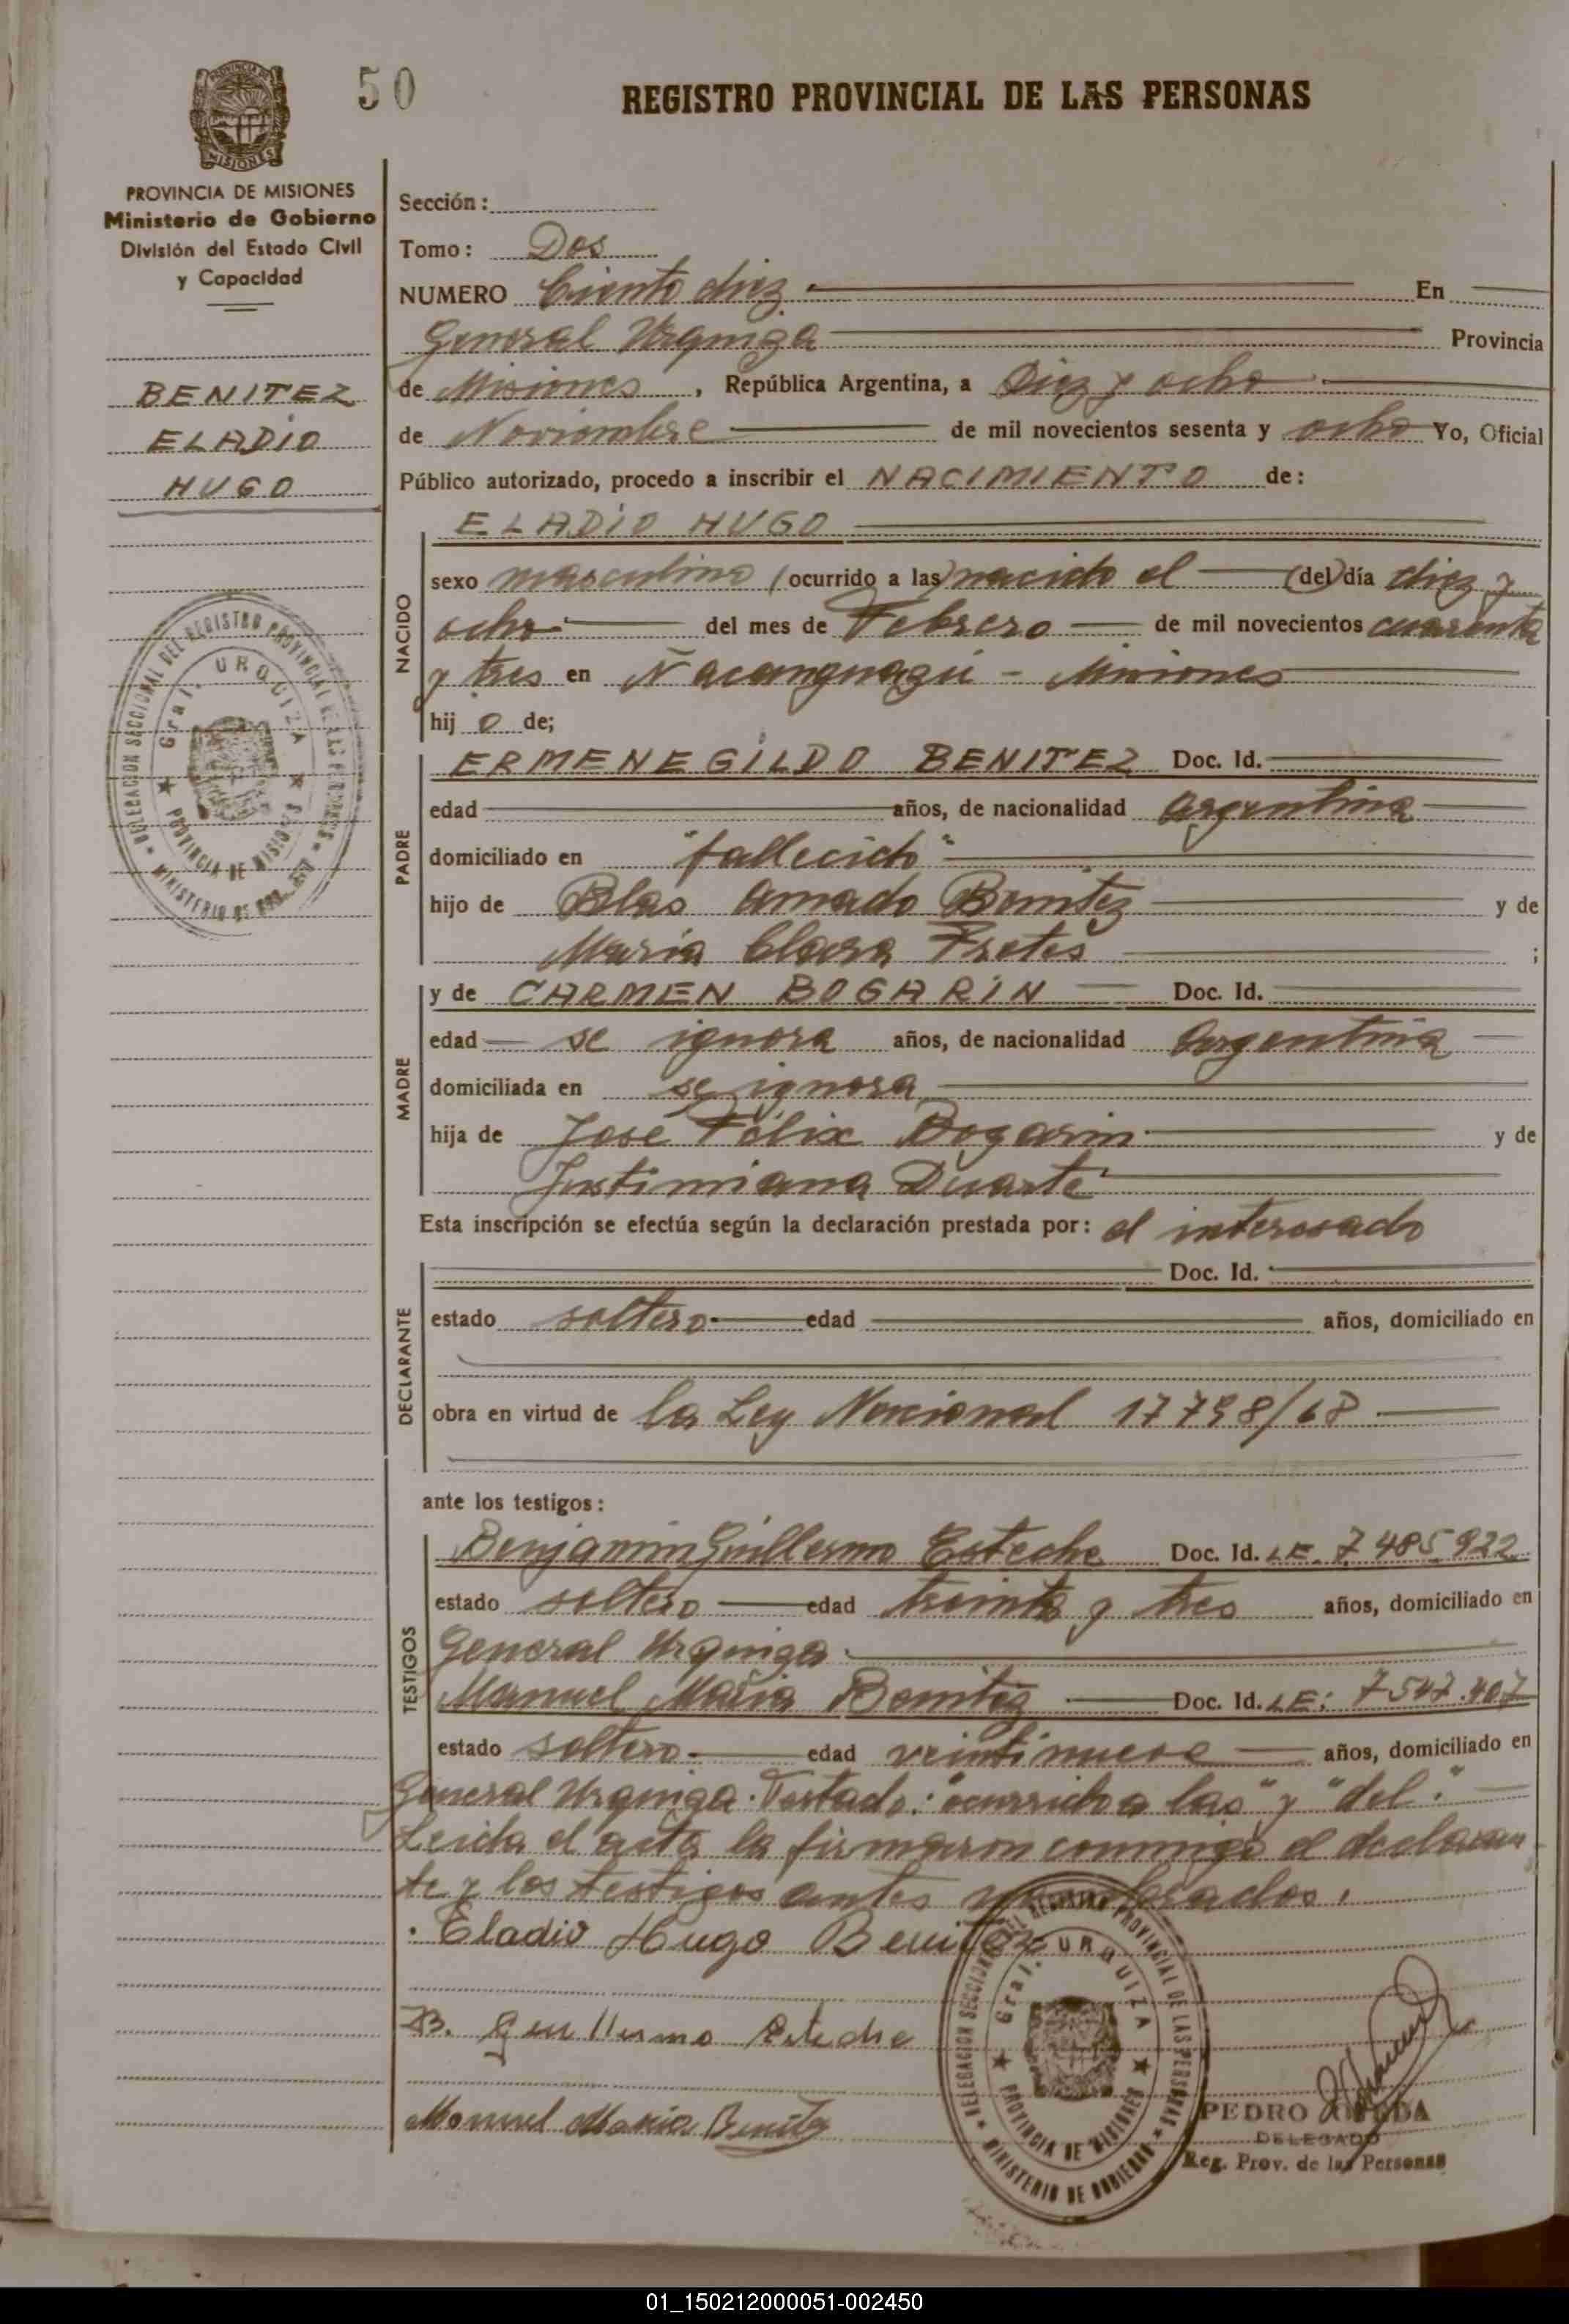 50
REGISTRO PROVINCIAL DE LAS PERSONAS
PROVINCIA DE MISIONES
Ministerio de Gobierno
División del Estado Civil
y Capacidad
BENITEZ
ELADIO
HUGO
Sección:
Tomo: Dos
NUMERO Ciento diez En
General Urquiza Provincia
de Misiones, República Argentina, a Diez y ocho
de Noviembre de mil novecientos sesenta y ocho Yo, Oficial
Público autorizado, procedo a inscribir el NACIMIENTO de:
ELADIO HUGO
NACIDO
sexo masculino (ocurrido a las) nacido el (del) día diez y
ocho del mes de Febrero de mil novecientos cuarenta
y tres en Ñacanguazú - Misiones
hijo de;
PADRE
ERMENEGILDO BENITEZ Doc. Id.
edad años, de nacionalidad Argentina
domiciliado en "fallecido"
hijo de Blas Amado Benitez y de
María Clara Fretes ;
MADRE
y de CARMEN BOGARIN Doc. Id.
edad se ignora años, de nacionalidad Argentina
domiciliada en se ignora
hija de José Félix Bogarin y de
Justiniana Duarte
Esta inscripción se efectúa según la declaración prestada por: el interesado
DECLARANTE
Doc. Id.
estado soltero edad años, domiciliado en
obra en virtud de la Ley Nacional 17798/68
ante los testigos:
TESTIGOS
Benjamin Guillermo Esteche Doc. Id. LE. 7485922
estado soltero edad treinta y tres años, domiciliado en
General Urquiza
Manuel María Benitez Doc. Id. LE: 7547.407
estado soltero edad veintinueve años, domiciliado en
General Urquiza. Testado: "ocurrido a las" y "del".
Leida el acta la firmaron conmigo el declaran
te y los testigos antes nombrados.
Eladio Hugo Benitez
B. Guillermo Esteche
Manuel Maria Benitez
DELEGACION SECCIONAL DEL REGISTRO PROVINCIAL DE LAS PERSONAS
Gral. URQUIZA
PROVINCIA DE MISIONES
MINISTERIO DE GOBIERNO
PEDRO OJEDA
DELEGADO
Reg. Prov. de las Personas
01_150212000051-002450